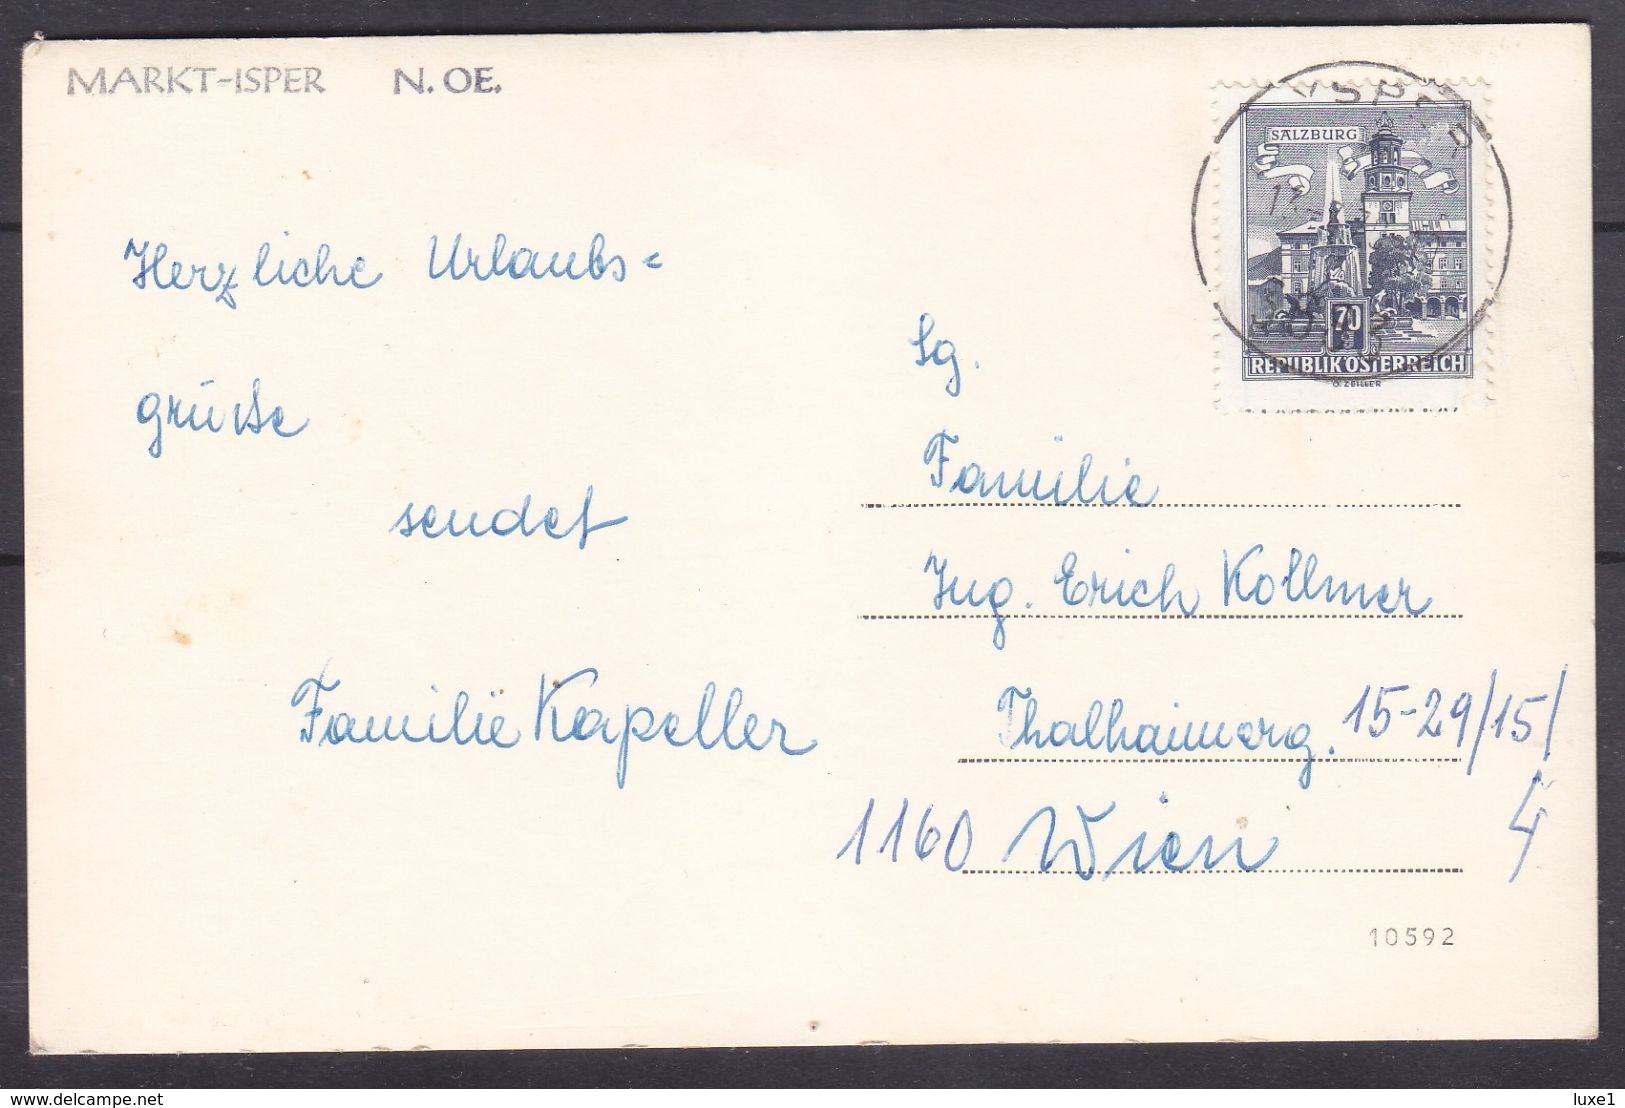 MARKT-ISPER N. OE.
Herzliche Urlaubs=
grüße
sendet
Familie Kapeller
SALZBURG
70
REPUBLIK ÖSTERREICH
O. ZEILLER
Sg.
Familie
Ing. Erich Kollmer
Thalhaimerg. 15-29/15/
4
1160 Wien
10592
www.delcampe.net
luxe1